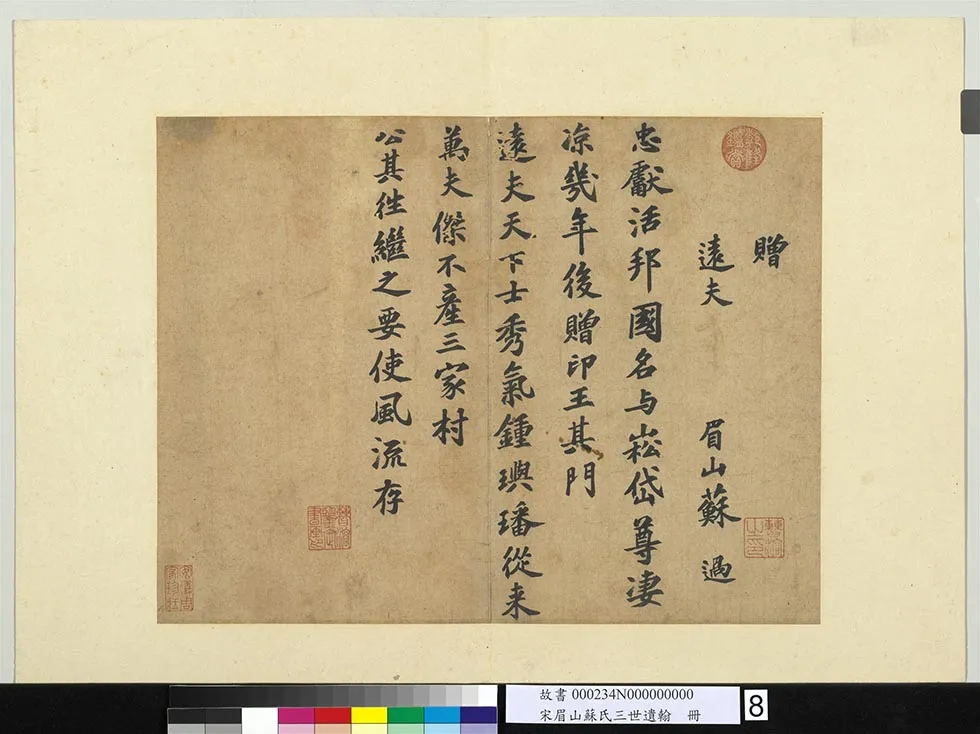 贈
遠夫　眉山蘇過
忠獻活邦國名与崧岱尊凄
凉幾年後贈印王其門
遠夫天下士秀氣鍾璵璠從来
萬夫傑不產三家村
公其徃繼之要使風流存
故書 000234N000000000
宋眉山蘇氏三世遺翰 冊
8